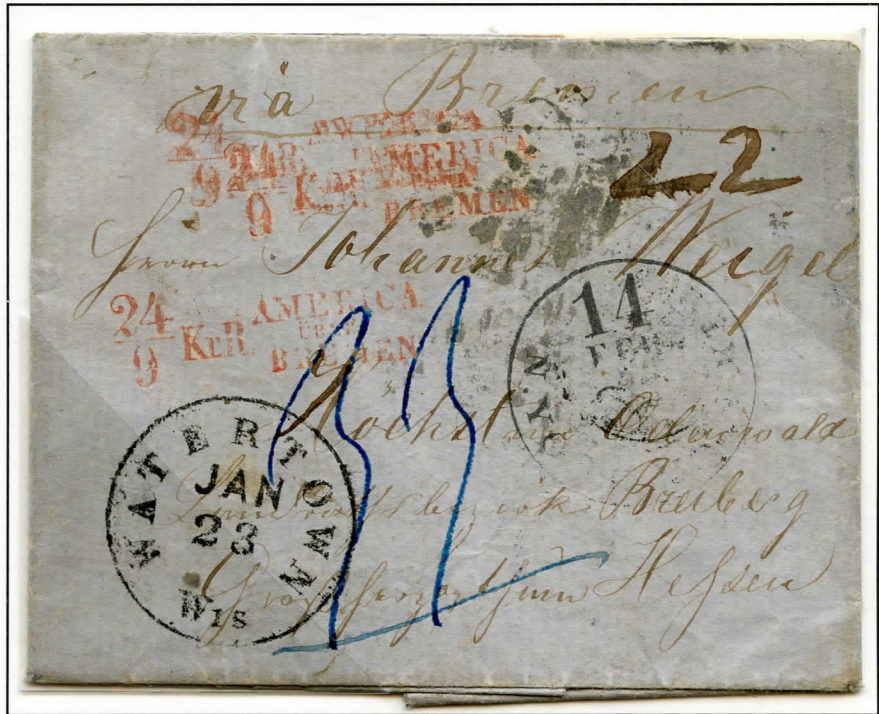 via Bremen
24/9 KrR. AMERICA
24/9 KrR. AMERICA
BREMEN
22
Herrn Johannes Weigel
24/9 KrR. AMERICA
ÜBER
BREMEN
14
FEB
N. Y.
33
Höchst im Odenwald
Landrathsbezirk Breuberg
Großherzogthum Hessen
WATERTOWN
JAN
23
Wis